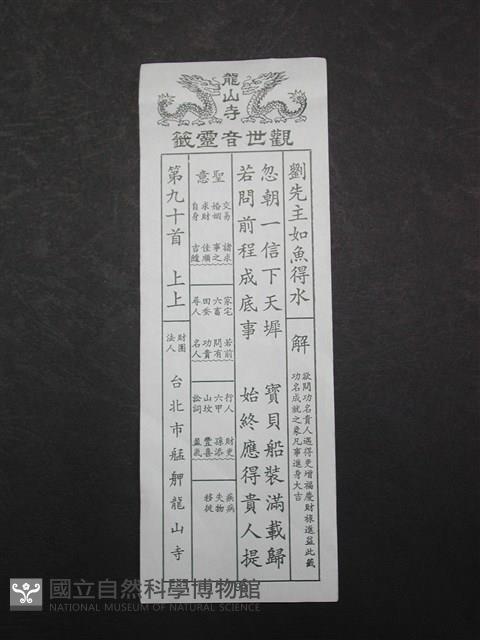 龍山寺
觀世音靈籤
劉先主如魚得水
解
欲問功名貴人遇得更增福慶財祿進益此籤
功名成就之象凡事進身大吉
忽朝一信下天墀 寶貝船裝滿載歸
若問前程成底事 始終應得貴人提
聖意
交易 諸求
婚姻 事之
求財 佳順
自身 吉緣
家宅 若前
六畜 問有
田蚕 功貴
尋人 名人
行人 財更
六甲 孫添
山坟 豐喜
訟詞 益氣
疾病
失物
移徙
第九十首 上上
財團
法人
台北市艋舺龍山寺
國立自然科學博物館
NATIONAL MUSEUM OF NATURAL SCIENCE